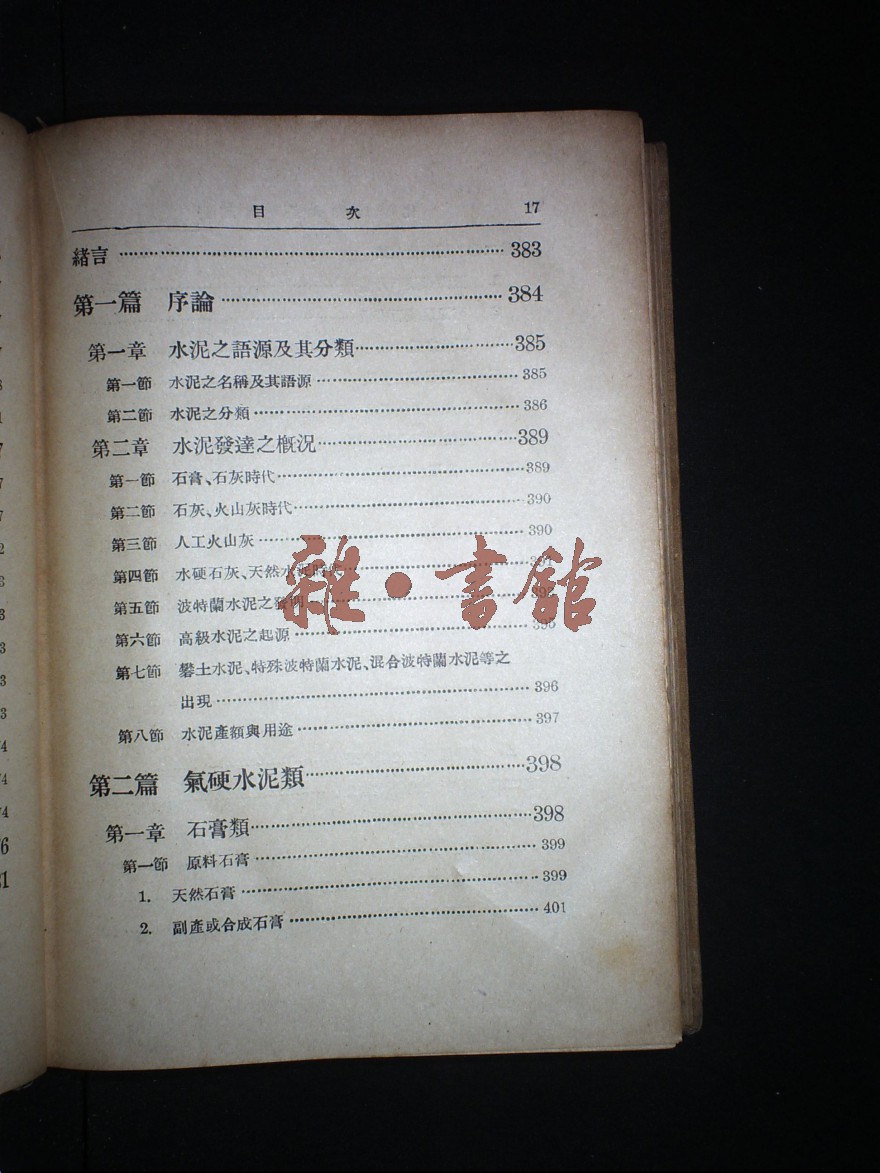 目 次 17
緒言 383
第一篇 序論 384
第一章 水泥之語源及其分類 385
第一節 水泥之名稱及其語源 385
第二節 水泥之分類 386
第二章 水泥發達之槪況 389
第一節 石膏、石灰時代 389
第二節 石灰、火山灰時代 390
第三節 人工火山灰 390
第四節 水硬石灰、天然水泥時代
第五節 波特蘭水泥之發明
第六節 高級水泥之起源 395
第七節 礬土水泥、特殊波特蘭水泥、混合波特蘭水泥等之
出現 396
第八節 水泥產額與用途 397
第二篇 氣硬水泥類 398
第一章 石膏類 398
第一節 原料石膏 399
1. 天然石膏 399
2. 副產或合成石膏 401
雜·書館